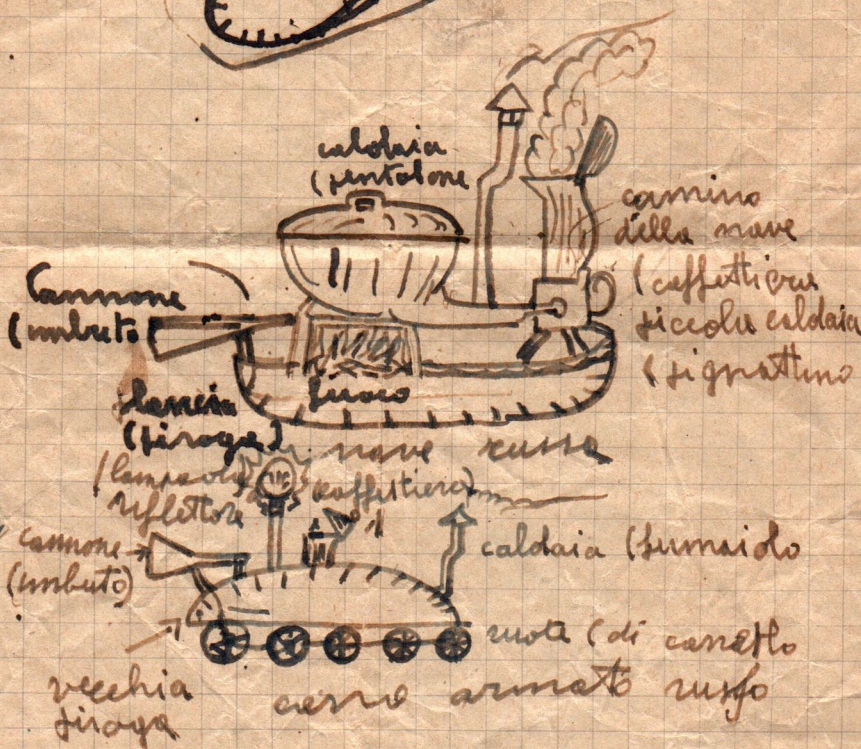 caldaia
(pentolone
camino
della nave
(caffettiera
piccola caldaia
(pignattino
Cannone
(imbuto
fuoco
lancia
(piroga)
nave russa
(lampada)
riflettore
caffettiera)
cannone
(imbuto)
caldaia (fumaiolo
ruote (di carretto
vecchia
piroga
carro armato russo